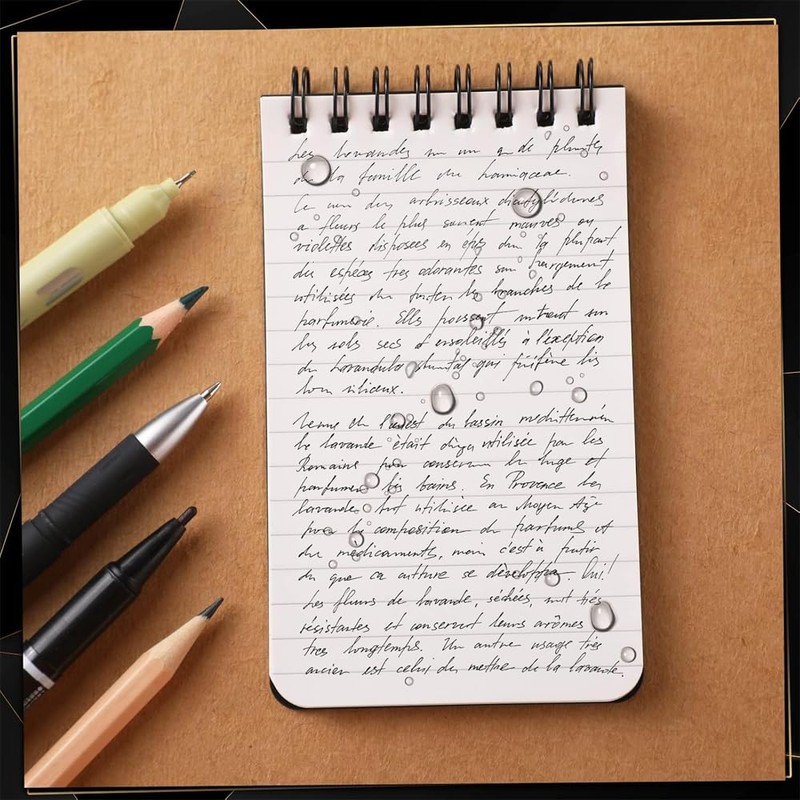 Les lavandes un de plantes
de la famille du Lamiaceae.
Ce des arbrisseaux dicotylédones
a fleurs le plus souvent mauves ou
violettes disposées en épis la plupart
des espéces tres odorantes sont largement
utilisées les branches de la
parfumerie. Elles poussent surtout sur
les sols secs et ensoleillés à l'exception
du Lavandula qui préfère les
siliceux.
Venue de l'ouest du bassin mediterranéen
la lavande était utilisée par les
Romains pour conserver le linge et
parfumer les bains. En Provence les
lavandes utilisée au Moyen Age
pour la composition de parfums et
du medicaments, mais c'est à partir
du que ca culture se développa.
Les fleurs de lavande, séchées, sont trés
résistantes et conservent leurs arômes
trés longtemps. Un autre usage trés
ancien est celui du de la lavande.